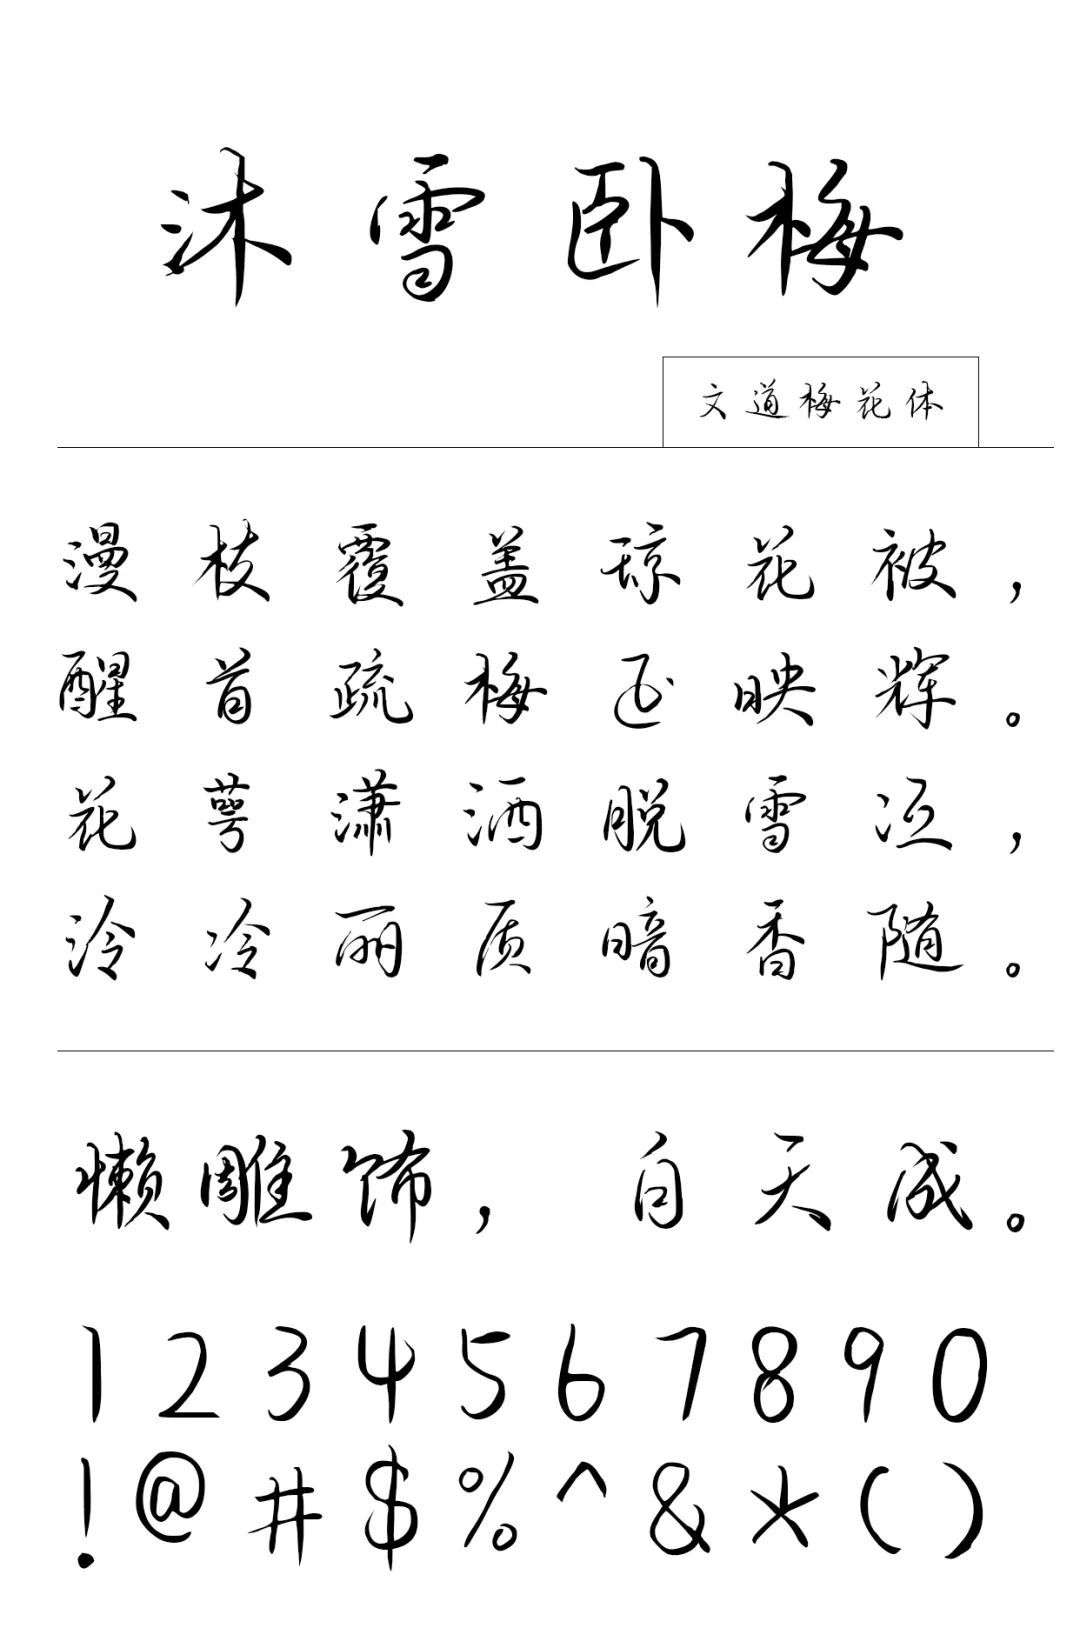 沐雪卧梅
文道梅花体
漫枝覆盖琼花被，
醒首疏梅正映辉。
花萼潇洒脱雪冱，
泠冷丽质暗香随。
懒雕饰，自天成。
1234567890
!@#$%^&*()